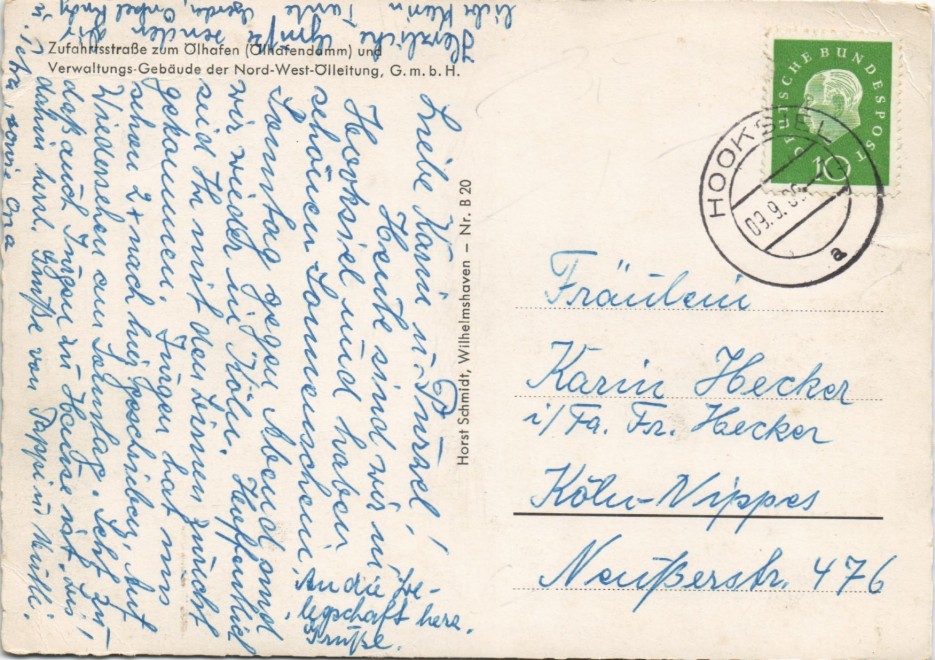 Zufahrtsstraße zum Ölhafen (Ölhafendamm) und
Verwaltungs-Gebäude der Nord-West-Ölleitung, G.m.b.H.
Liebe Karin u. Purzel!
Heute sind wir in
Hooksiel und haben
schönen Sonnenschein,
Sonntag gegen Abend sind
wir wieder in Köln. Hoffentlich
seid Ihr mit den Lesen zurecht
gekommen. Jürgen hat uns
schon 2x nach hier geschrieben. Auf
Wiedersehen am Sonntag. Seht zu
daß auch Jürgen zu Hause ist, bis
dahin herzl. Grüße von Pappi u. Mutti.
An die Be-
legschaft herz.
Grüße.
Herzliche Grüße senden Dir
liebe Karin Tante
Gerda, Onkel Rudy
u. sowie Oma
Horst Schmidt, Wilhelmshaven – Nr. B 20
DEUTSCHE BUNDESPOST
10
HOOKSIEL
09.9.
a
Fräulein
Karin Hecker
i/Fa. Fr. Hecker
Köln-Nippes
Neußerstr. 476